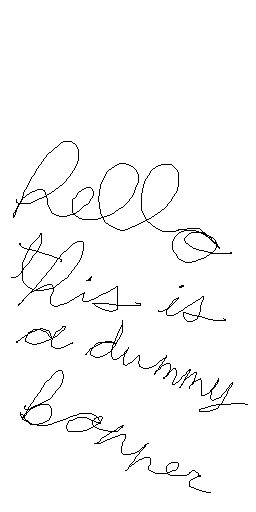 hello
this is
a dummy
banner